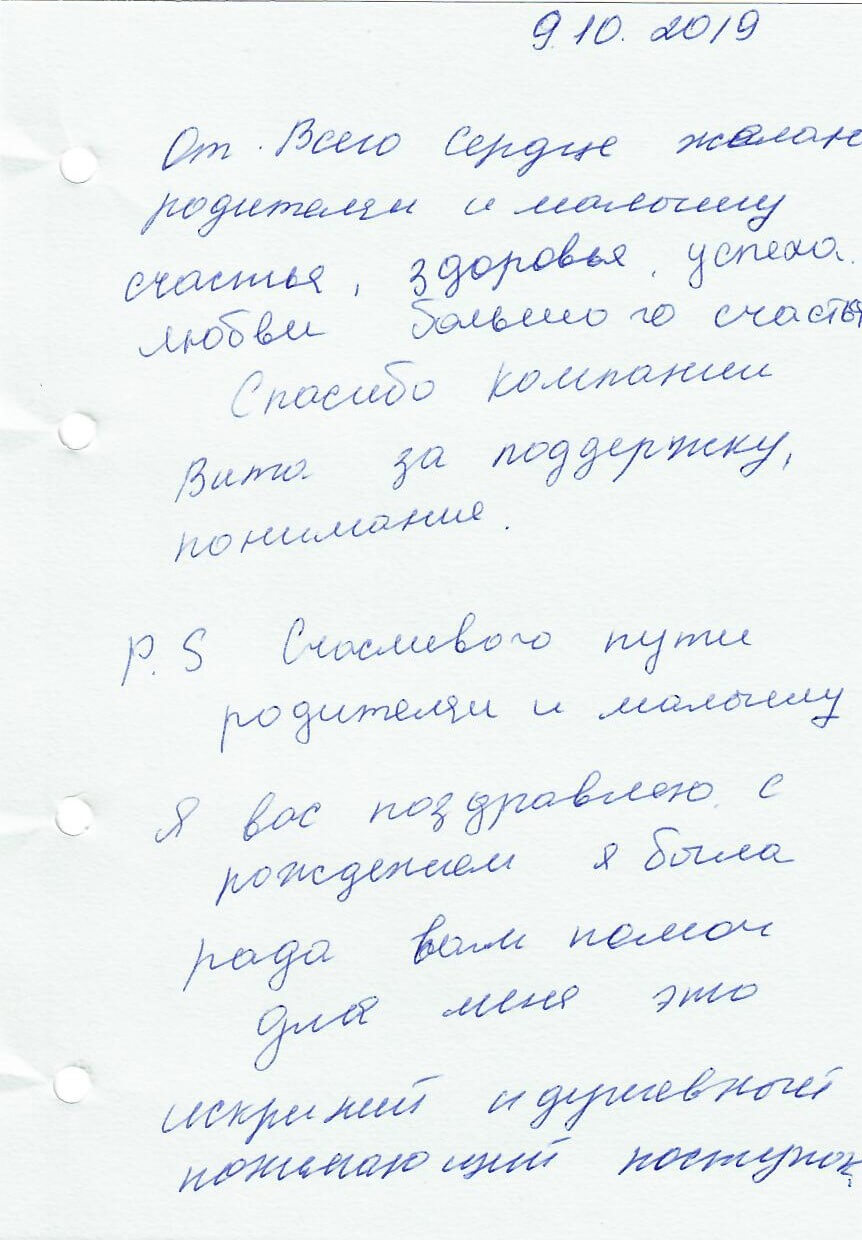 9.10.2019
От Всего сердце желаю
родителям и малышу
счастья, здоровья, успеха.
любви большого счастья
Спасибо компании
Вита за поддержку,
понимание.
P.S Счасливого пути
родителям и малышу
Я вас поздравлою с
рождением я была
рада вам помоч
для меня это
искриний и душевный
понимающий поступок,